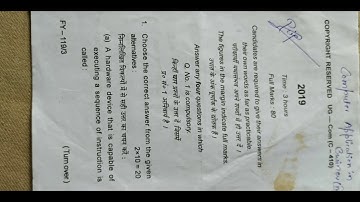 Computer Application in
COPYRIGHT RESERVED UG — Com (C-410)
2019
Time : 3 hours
Full Marks : 80
Candidates are required to give their answers in
their own words as far as practicable.
परीक्षार्थी यथासंभव अपने शब्दों में ही उत्तर दें ।
The figures in the margin indicate full marks.
उपांत के अंक पूर्णांक के द्योतक हैं ।
Answer any four questions in which
Q. No. 1 is compulsory.
किन्हीं चार प्रश्नों के उत्तर दें जिसमें
प्र० सं० 1 अनिवार्य है ।
1. Choose the correct answer from the given
alternatives : 2×10 = 20
निम्नलिखित विकल्पों में से सही उत्तर का चयन करें :
(a) A hardware device that is capable of
executing a sequence of instruction is
called :
FY – 119/3 (Turn over)